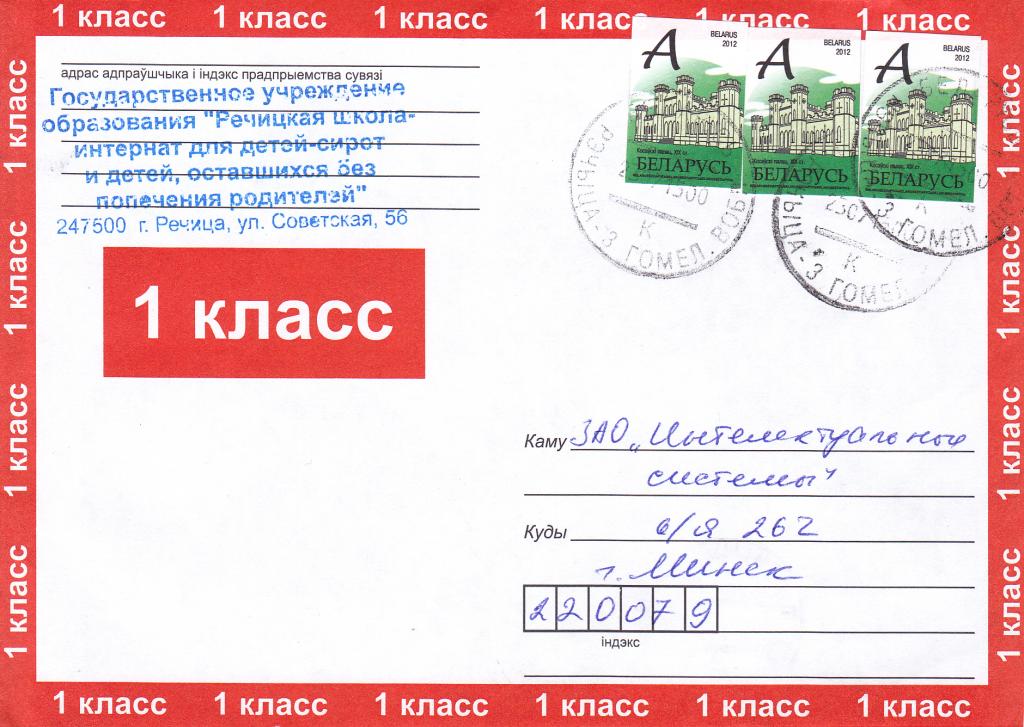 1 класс 1 класс 1 класс 1 класс 1 класс 1 класс
1 класс
1 класс
1 класс
1 класс
адрас адпраўшчыка і індэкс прадпрыемства сувязі
Государственное учреждение
образования "Речицкая школа-
интернат для детей-сирот
и детей, оставшихся без
попечения родителей"
247500 г. Речица, ул. Советская, 56
A BELARUS 2012
Косаўскі палац, XIX ст.
БЕЛАРУСЬ
A BELARUS 2012
Косаўскі палац, XIX ст.
БЕЛАРУСЬ
A BELARUS 2012
Косаўскі палац, XIX ст.
БЕЛАРУСЬ
РЭЧЫЦА-3 ГОМЕЛ. ВОБЛ
К
ЫЦА-3 ГОМЕЛ
К
3 ГОМЕЛ.
К
1 класс
Каму ЗАО "Интелектуальные
системы"
Куды а/я 262
г. Минск
220079
індэкс
1 класс
1 класс
1 класс
1 класс
1 класс 1 класс 1 класс 1 класс 1 класс 1 класс